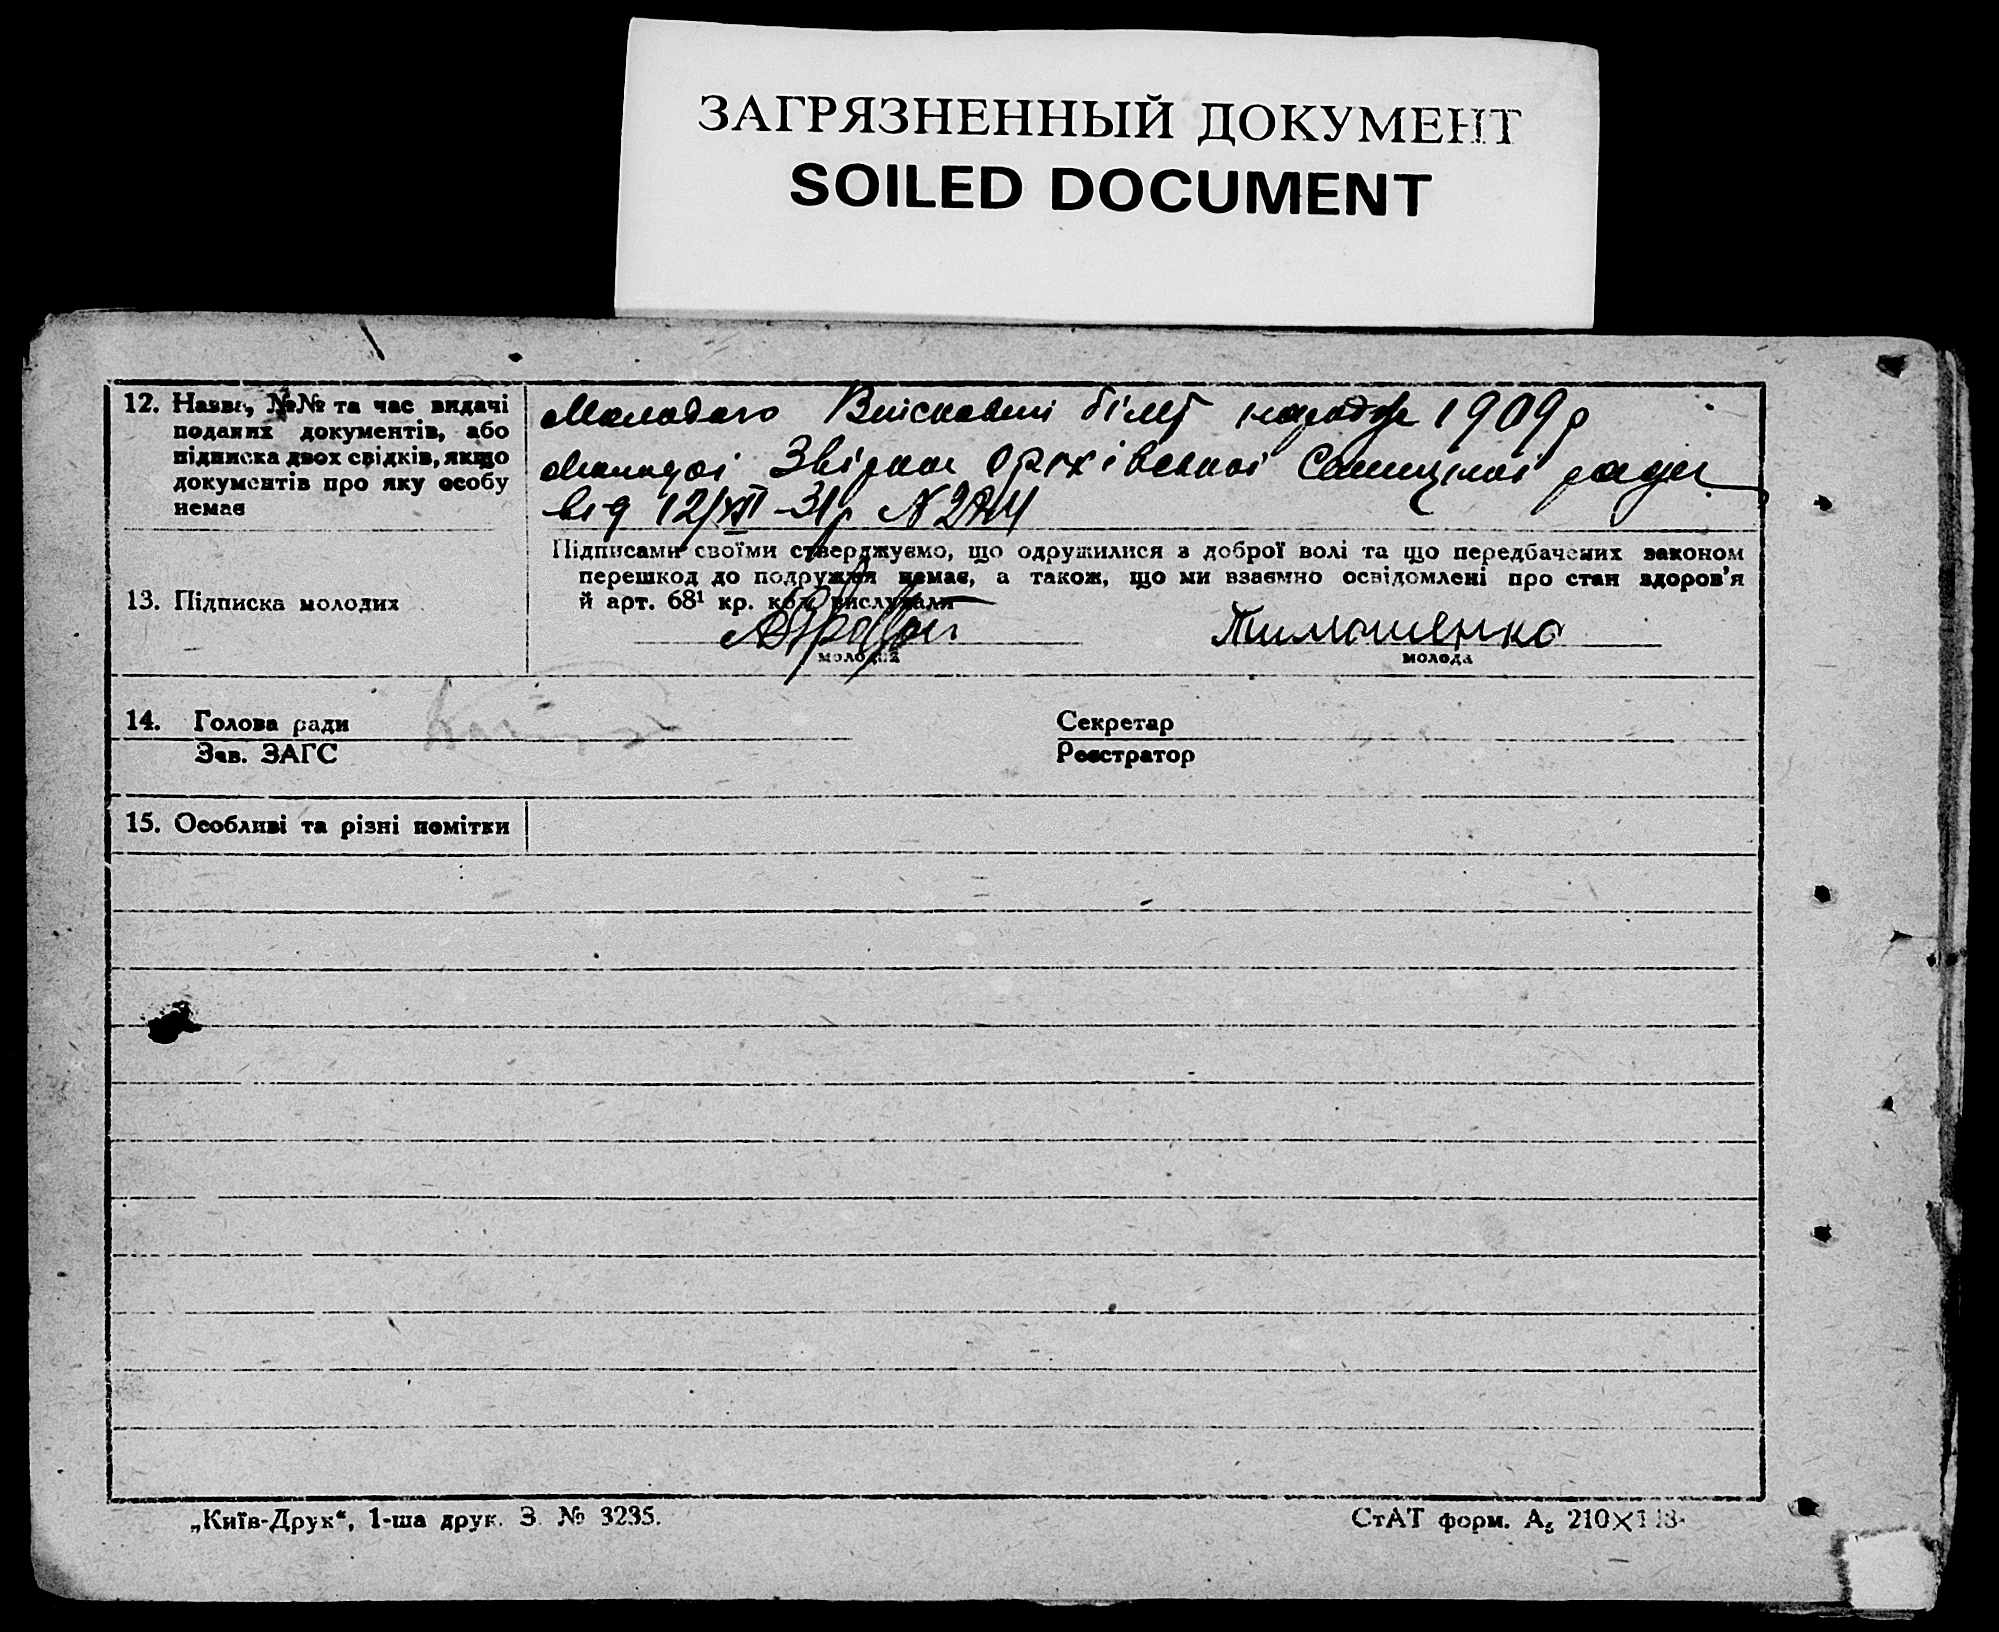 ЗАГРЯЗНЕННЫЙ ДОКУМЕНТ
SOILED DOCUMENT
12. Назви, №№ та час видачі
поданих документів, або
підписка двох свідків, якщо
документів про яку особу
немає
Молодого білет 1909 р
Молодої Оріхівської ради
від 12/XII-31р N
Підписами своїми стверджуємо, що одружилися з доброї волі та що передбачених законом
перешкод до подружжя немає, а також, що ми взаємно освідомлені про стан здоров'я
й арт. 68¹ кр. код. вислухали
13. Підписка молодих
Тимошенко
молодий
молода
14. Голова ради
Секретар
Зав. ЗАГС
Реєстратор
15. Особливі та різні помітки
„Київ-Друк“, 1-ша друк. З. № 3235.
СтАТ форм. А₅ 210×